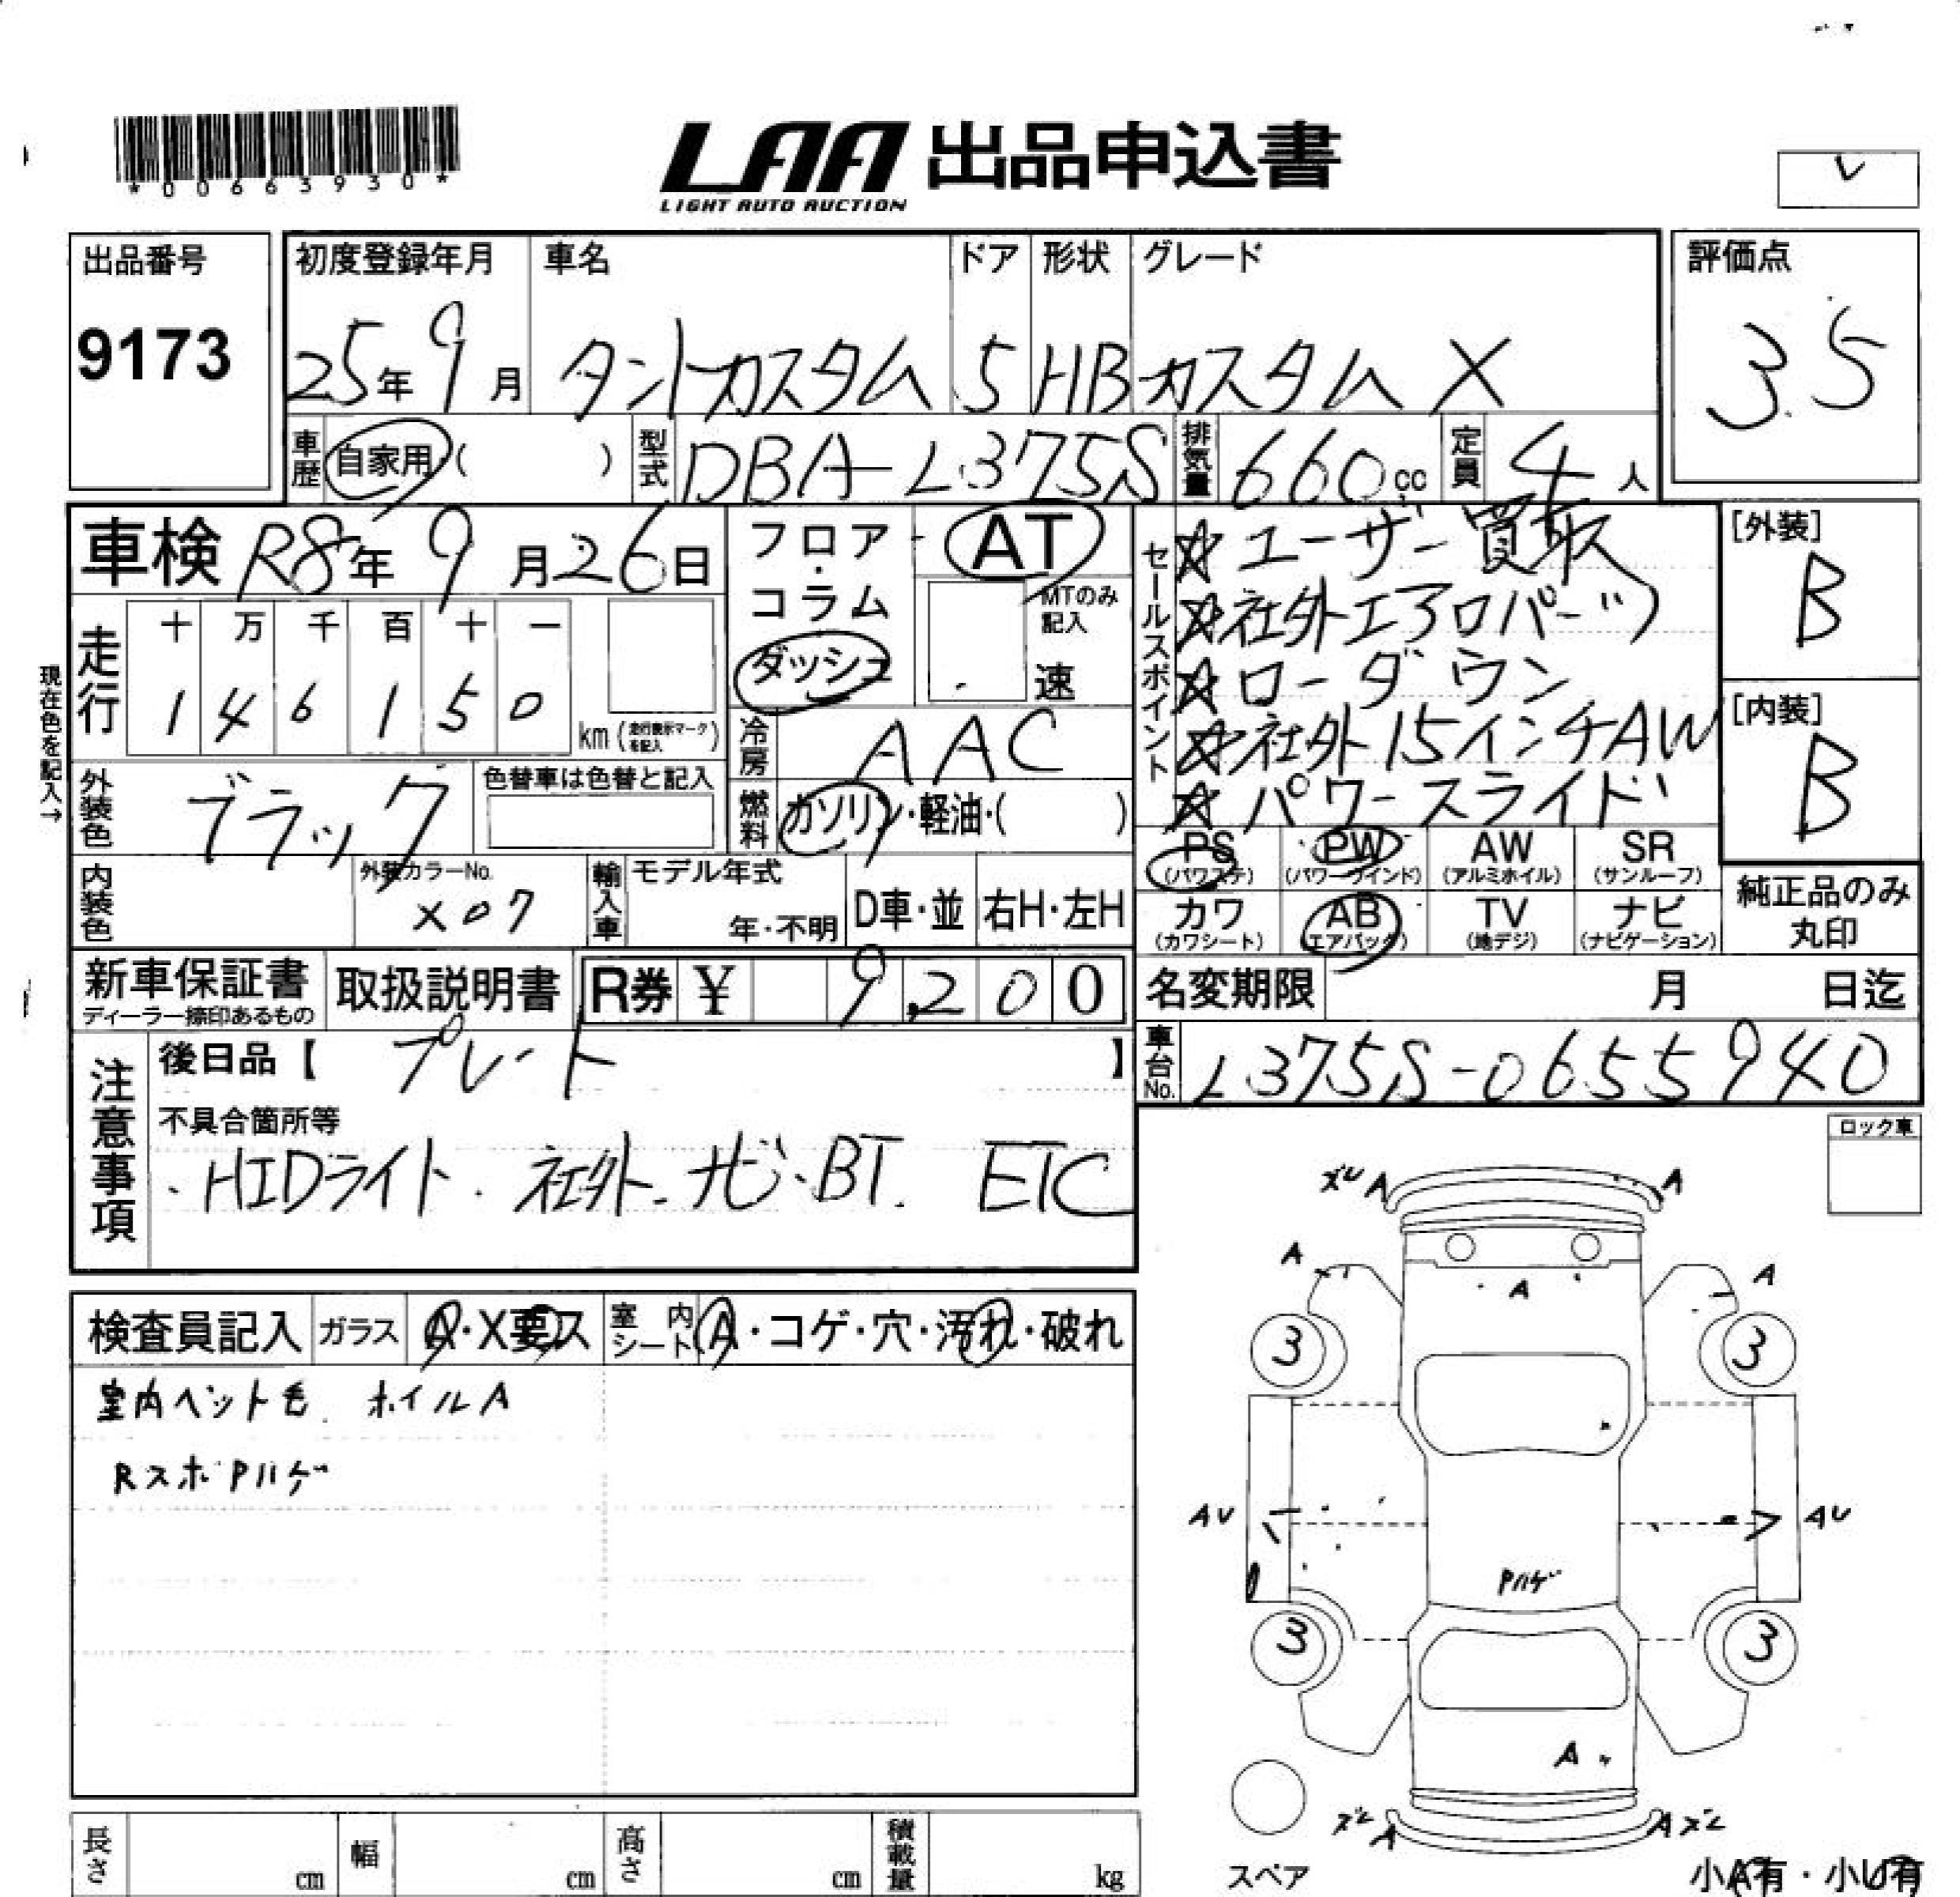 *00663930*
LAA 出品申込書
LIGHT AUTO AUCTION
出品番号
9173
初度登録年月 車名 ドア 形状 グレード
25年9月 タントカスタム 5 HB カスタム X
評価点
3.5
車歴 自家用( ) 型式 DBA-L375S 排気量 660cc 定員 4人
車検 R8年9月26日
フロア・コラム
ダッシュ
AT
MTのみ記入
速
走行
十 万 千 百 十 一
1 4 6 1 5 0 km(走行表示マークを記入)
現在色を記入→
冷房 AAC
外装色 ブラック 色替車は色替と記入
燃料 ガソリン・軽油・( )
内装色 外装カラーNo. X07
輸入車 モデル年式 年・不明 D車・並 右H・左H
セールスポイント
☆ユーザー買取
☆社外エアロパーツ
☆ローダウン
☆社外15インチAW
☆パワースライド
[外装]
B
[内装]
B
PS(パワステ) PW(パワーウインド) AW(アルミホイル) SR(サンルーフ)
カワ(カワシート) AB(エアバック) TV(地デジ) ナビ(ナビゲーション)
純正品のみ丸印
新車保証書 ディーラー捺印あるもの 取扱説明書 R券 ¥ 9,200
名変期限 月 日迄
車台No. L375S-0655940
注意事項
後日品【 プレート 】
不具合箇所等
・HIDライト・社外ナビ・BT. ETC
ロック車
検査員記入 ガラス A・X要ス 室内シート A・コゲ・穴・汚れ・破れ
室内ペット毛 ホイルA
RスポPハゲ
ズレ A A
A A A
3 3
AU AU
Pハゲ
3 3
A
ズレ A A ズレ
スペア
小A有・小U有
長さ cm 幅 cm 高さ cm 積載量 kg